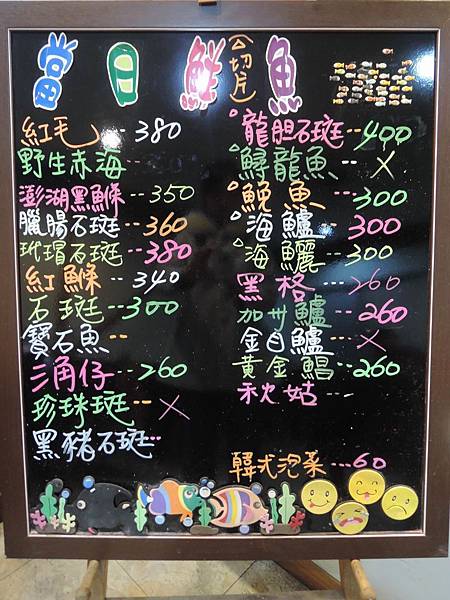 當月鮮魚(切片)
紅毛---380
野生赤海---
澎湖黑鯈---350
臘腸石斑--360
玳瑁石斑--380
紅鯈---340
石斑--300
寶石魚--
三角仔--260
珍珠斑--X
黑豬石斑---
△龍胆石斑--400
△鱘龍魚--X
△鮸魚---300
△海鱸--300
△海鱺--300
黑格---260
加州鱸--260
金目鱸--X
黃金鯧--260
秋姑---
韓式泡菜---60